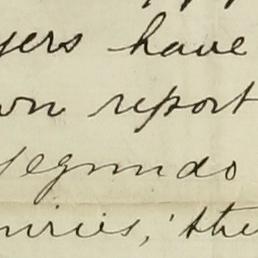 yers have
wn report
Segundo
uiries, the